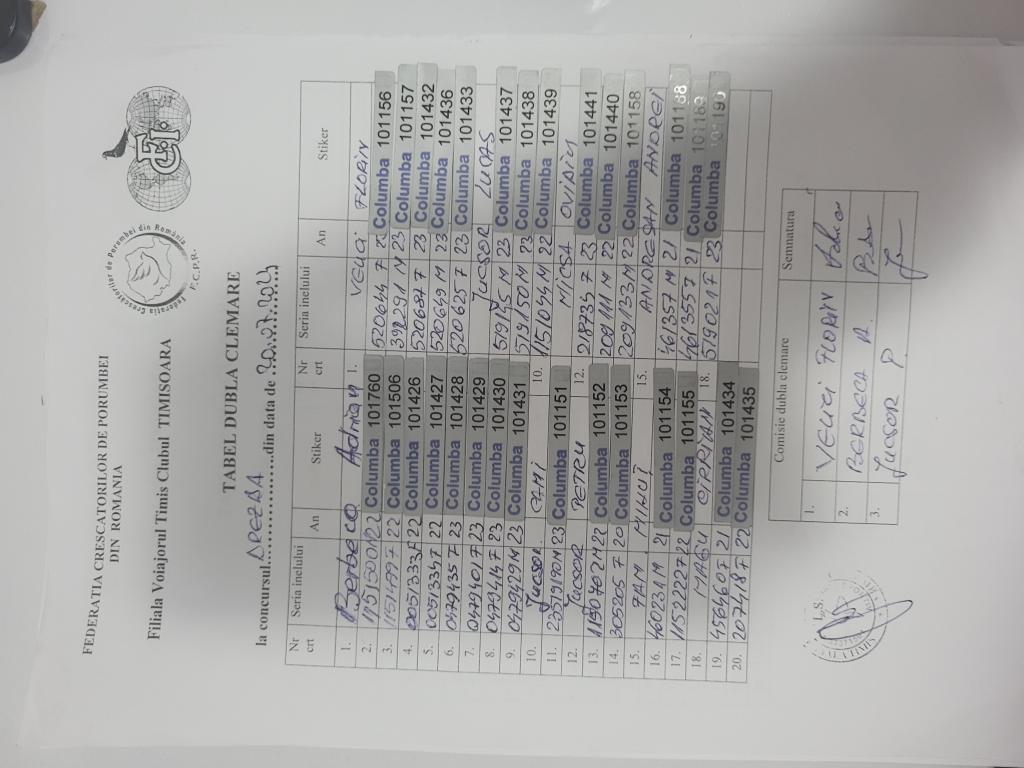 FEDERATIA CRESCATORILOR DE PORUMBEI
DIN ROMANIA
Federatia Crescatorilor de Porumbei din România
F.C.P.R.
Filiala Voiajorul Timis Clubul TIMISOARA
TABEL DUBLA CLEMARE
la concursul DREZDA din data de 20.07.2024
Nr crt Seria inelului An Stiker Nr crt Seria inelului An Stiker
1. Berbeca Adrian 1. VELICI FLORIN
2. 1151500 22 Columba 101760 520644 F 22 Columba 101156
3. 1151499 F 22 Columba 101506 392291 M 23 Columba 101157
4. 0057333 F 22 Columba 101426 520687 F 23 Columba 101432
5. 0057334 F 22 Columba 101427 520649 M 23 Columba 101436
6. 0479435 F 23 Columba 101428 520625 F 23 Columba 101433
7. 0479401 F 23 Columba 101429 Jucsor LUCAS
8. 0479414 F 23 Columba 101430 51915 M 23 Columba 101437
9. 0479429 M 23 Columba 101431 519150 M 23 Columba 101438
10. Jucsor 10. 1151094 M 22 Columba 101439
11. 23519190 M 23 Columba 101151 MICSA OVIDIU
12. Jucsor PETRU 12. 218734 F 23 Columba 101441
13. Columba 101152 209111 M 22 Columba 101440
14. 305905 F 20 Columba 101153 209133 M 22 Columba 101158
15. FAM. MIHUT 15. ANDREESAN ANDREI
16. 460234 M 21 Columba 101154 461357 M 21 Columba 101188
17. 1152227 F 22 Columba 101155 461355 F 21 Columba 101189
18. MAGU CIPRIAN 18. 519021 F 23 Columba 101190
19. 456460 F 21 Columba 101434
20. 207418 F 22 Columba 101435
Comisie dubla clemare Semnatura
1. VELICI FLORIN
2. BERBECA A.
3. Jucsor P.
L.S.